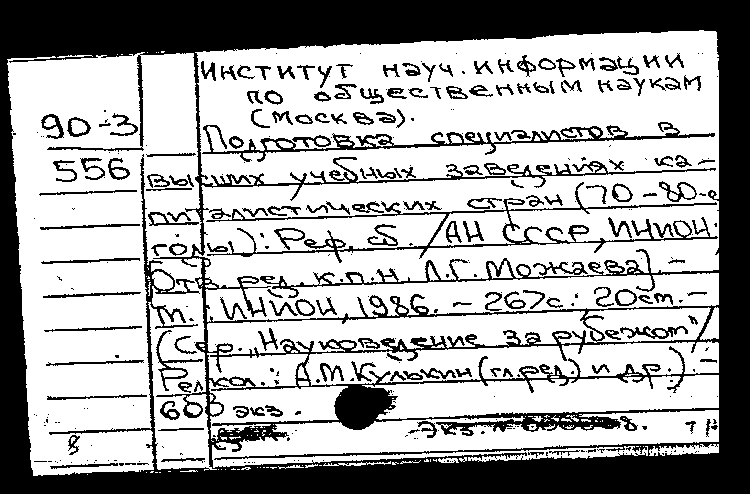 Институт науч. информации
по общественным наукам
(Москва).
90-3
Подготовка специалистов в
556
высших учебных заведениях ка-
питалистических стран (70-80-е
годы): Реф. сб. / АН СССР, ИНИОН;
[Отв. ред. к.п.н. Л.Г. Можаева]. -
М.: ИНИОН, 1986. - 267с.: 20см. -
(Сер. "Науковедение за рубежом" /
Редкол.: А.М. Кулькин (гл.ред.) и др.). -
600 экз.
Экз.
8